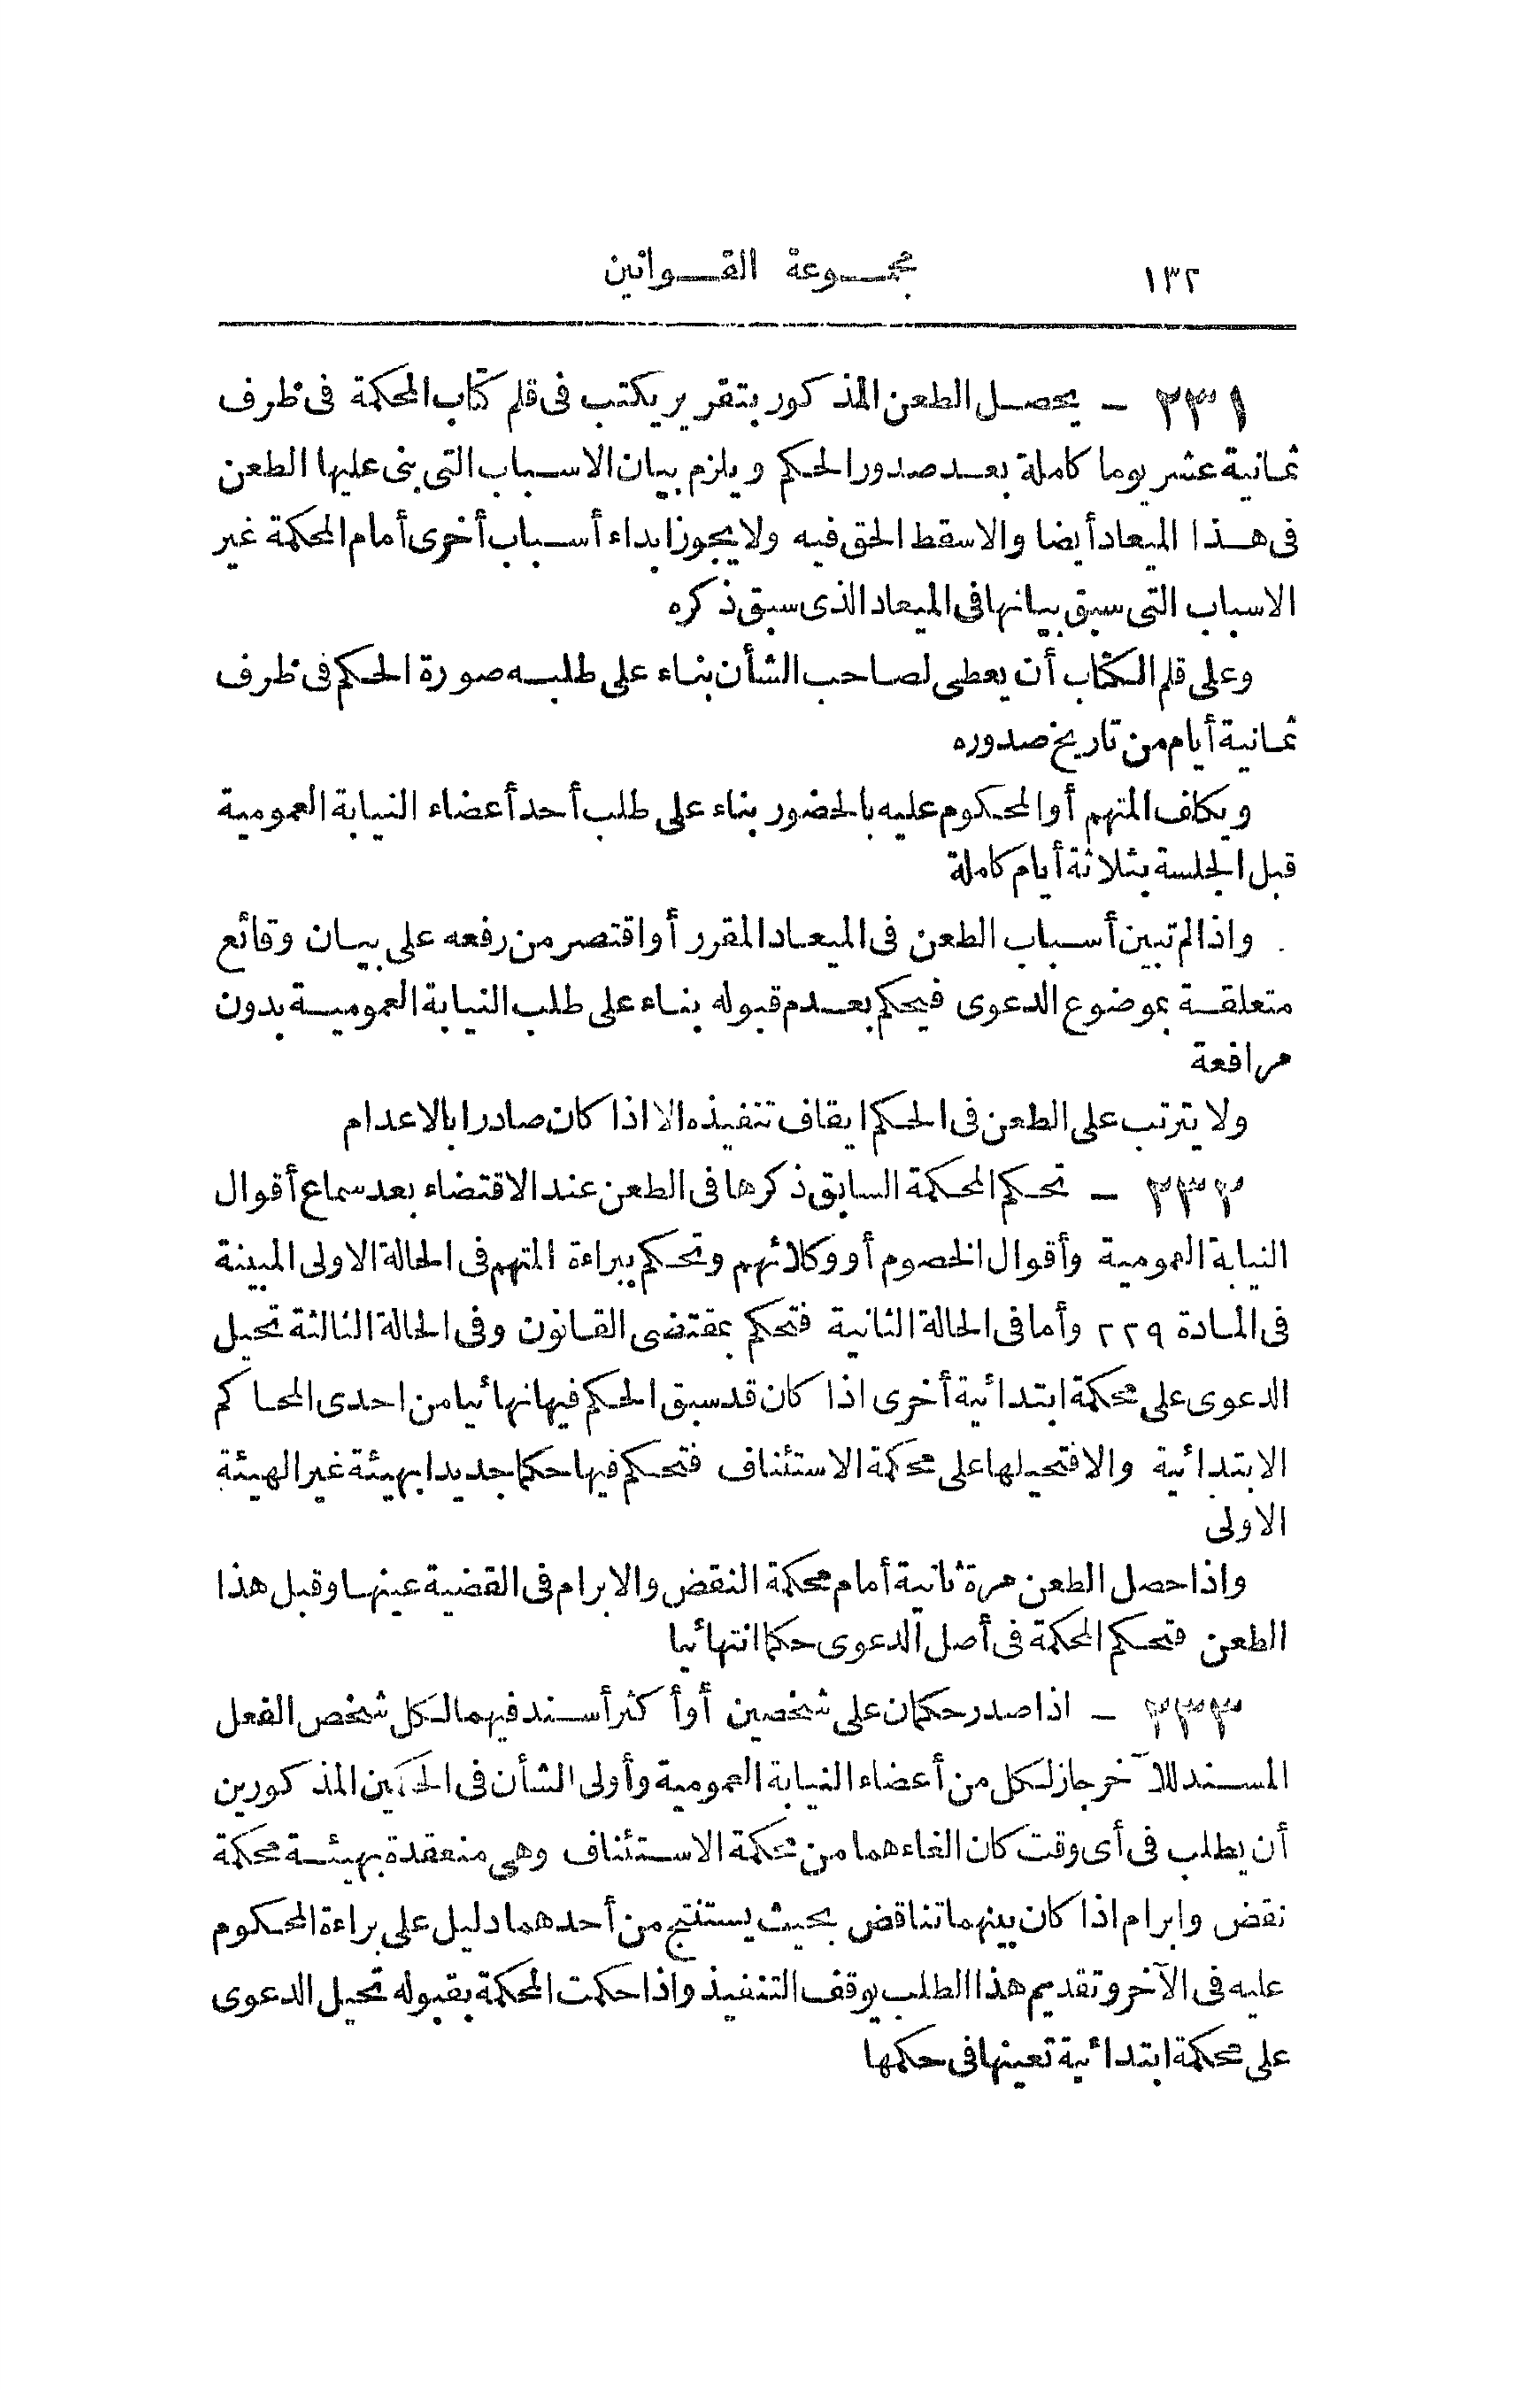 ١٣٢ مجموعة القوانين
٢٣١ - يحصل الطعن المذكور بتقرير يكتب فى قلم كتاب المحكمة فى ظرف
ثمانية عشر يوما كاملة بعد صدور الحكم ويلزم بيان الاسباب التى بنى عليها الطعن
فى هذا الميعاد أيضا والا سقط الحق فيه ولا يجوز ابداء أسباب أخرى أمام المحكمة غير
الاسباب التى سبق بيانها فى الميعاد الذى سبق ذكره
وعلى قلم الكتاب أن يعطى لصاحب الشأن بناء على طلبه صورة الحكم فى ظرف
ثمانية أيام من تاريخ صدوره
ويكلف المتهم أو المحكوم عليه بالحضور بناء على طلب أحد أعضاء النيابة العمومية
قبل الجلسة بثلاثة أيام كاملة
واذا لم تبين أسباب الطعن فى الميعاد المقرر أو اقتصر من رفعه على بيان وقائع
متعلقة بموضوع الدعوى فيحكم بعدم قبوله بناء على طلب النيابة العمومية بدون
مرافعة
ولا يترتب على الطعن فى الحكم ايقاف تنفيذه الا اذا كان صادرا بالاعدام
٢٣٢ - تحكم المحكمة السابق ذكرها فى الطعن عند الاقتضاء بعد سماع أقوال
النيابة العمومية وأقوال الخصوم أو وكلائهم وتحكم ببراءة المتهم فى الحالة الاولى المبينة
فى المادة ٢٢٩ وأما فى الحالة الثانية فتحكم بمقتضى القانون وفى الحالة الثالثة تحيل
الدعوى على محكمة ابتدائية أخرى اذا كان قد سبق الحكم فيها نهائيا من احدى المحاكم
الابتدائية والا فتحيلها على محكمة الاستئناف فتحكم فيها حكما جديدا بهيئة غير الهيئة
الاولى
واذا حصل الطعن مرة ثانية أمام محكمة النقض والابرام فى القضية عينها وقبل هذا
الطعن فتحكم المحكمة فى أصل الدعوى حكما انتهائيا
٢٣٣ - اذا صدر حكمان على شخصين أو أكثر أسند فيهما لكل شخص الفعل
المسند للآخر جاز لكل من أعضاء النيابة العمومية وأولى الشأن فى الحكمين المذكورين
أن يطلب فى أى وقت كان الغاءهما من محكمة الاستئناف وهى منعقدة بهيئة محكمة
نقض وابرام اذا كان بينهما تناقض بحيث يستنتج من أحدهما دليل على براءة المحكوم
عليه فى الآخر وتقديم هذا الطلب يوقف التنفيذ واذا حكمت المحكمة بقبوله تحيل الدعوى
على محكمة ابتدائية تعينها فى حكمها